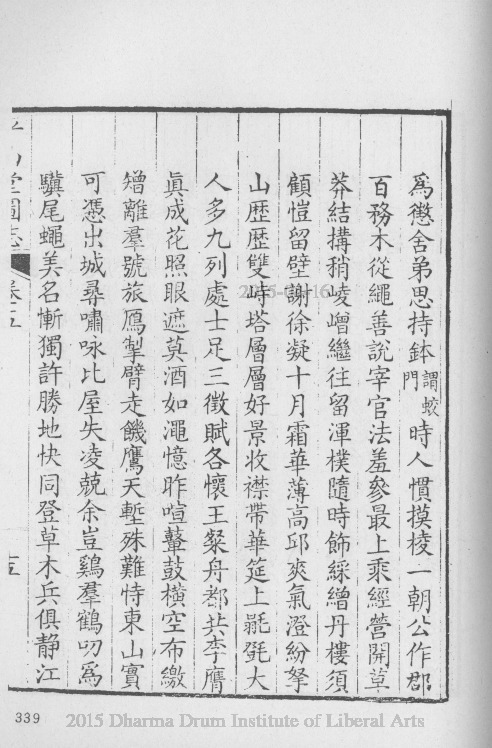 爲懲舍弟思持鉢謂蛟門時人慣摸棱一朝公作郡
百務木從繩善說宰官法羞參最上乘經營開草
莽結搆稍崚嶒繼往留渾樸隨時飾綵繒丹樓須
顧愷留壁謝徐凝十月霜華薄高邱爽氣澄紛拏
山歷歷雙峙塔層層好景收襟帶華筵上毾㲪大
人多九列處士足三徵賦各懷王粲舟都共李膺
眞成花照眼遮莫酒如澠憶昨喧鼙鼓橫空布繳
矰離羣號旅鴈掣臂走饑鷹天塹殊難恃東山實
可憑出城尋嘯咏比屋失凌兢余豈鷄羣鶴叨爲
驥尾蠅美名慚獨許勝地快同登草木兵俱靜江
山堂圖志
卷五
十五
339
2015 Dharma Drum Institute of Liberal Arts